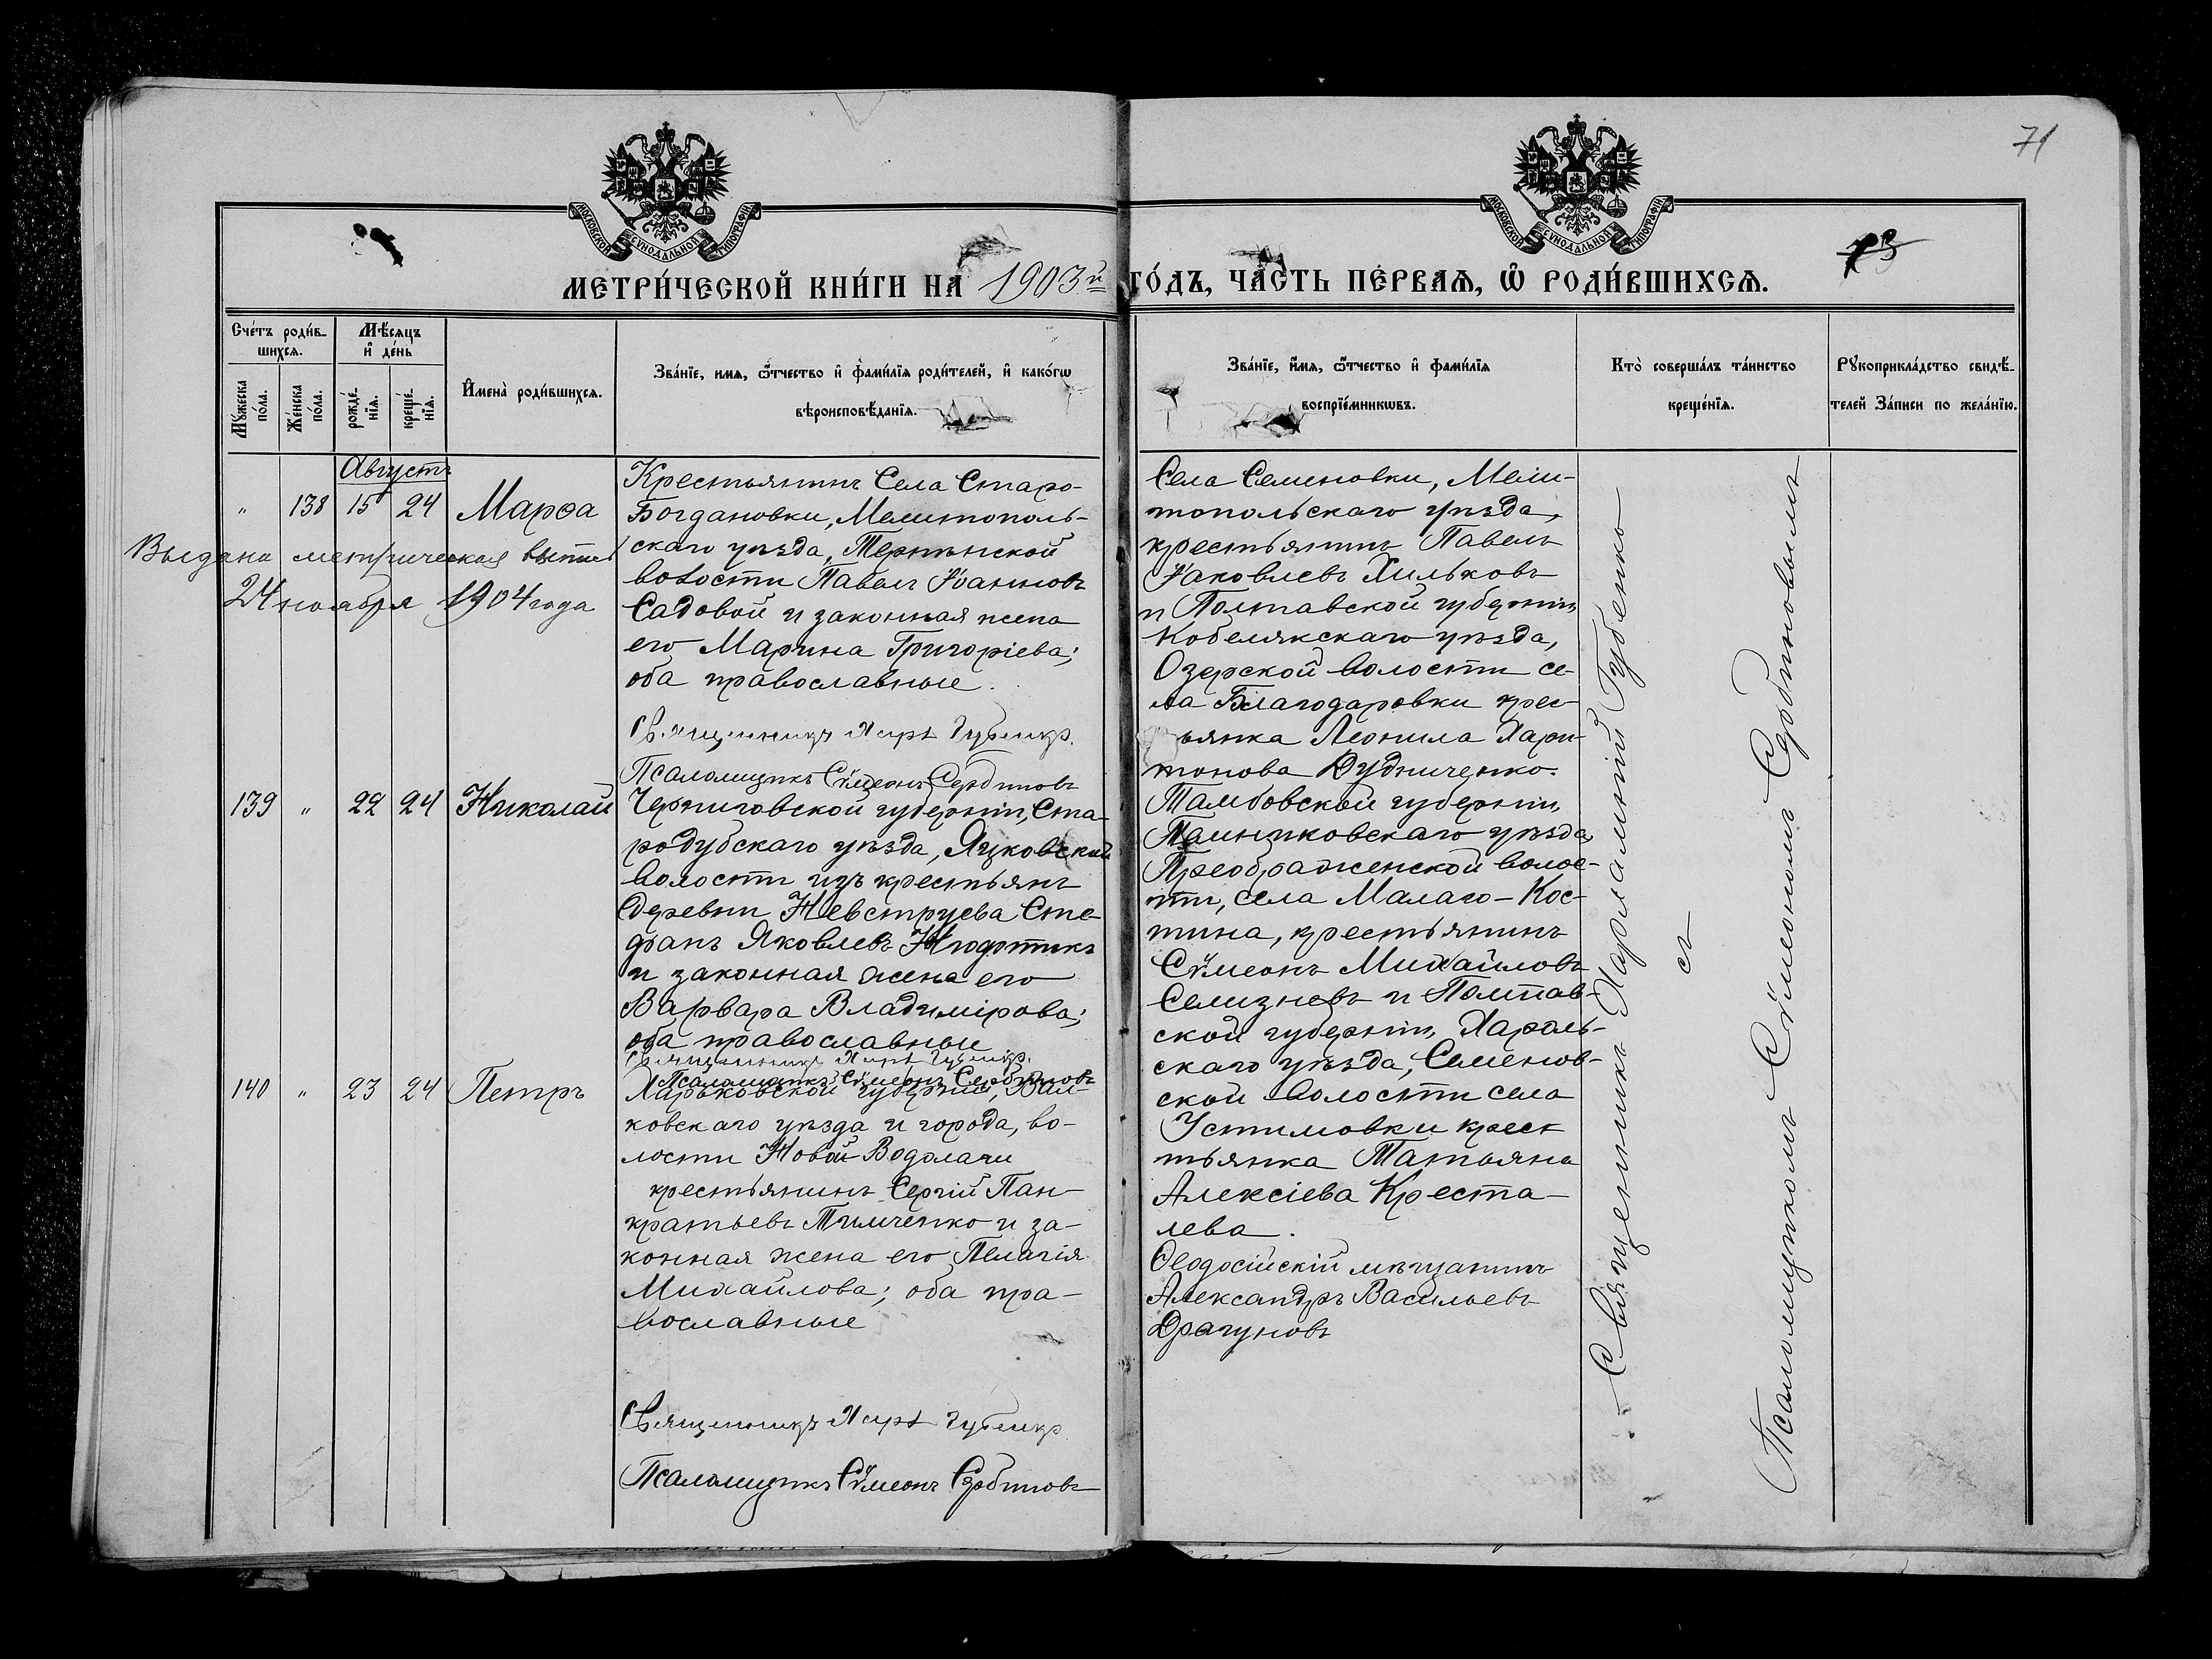 71
МОСКОВСКОЙ СѴНОДАЛЬНОЙ ТИПОГРАФІИ
МОСКОВСКОЙ СѴНОДАЛЬНОЙ ТИПОГРАФІИ
МЕТРИ́ЧЕСКОЙ КНИ́ГИ НА 1903й ГО́ДЪ, ЧА́СТЬ ПЕ́РВАѦ, Ѿ РОДИ́ВШИХСѦ.
Сче́тъ роди́в-
шихсѧ.
Мѣ́сѧцъ
и҆ де́нь
Мꙋ́жеска
по́ла.
Же́нска
по́ла.
рожде́-
нїѧ.
креще́-
нїѧ.
И҆мена̀ роди́вшихсѧ.
Зва́нїе, имѧ, ѻ҆́тчество и҆ фами́лїѧ роди́телей, и҆ како́гѡ
вѣроисповѣ́данїѧ.
Зва́нїе, и҆́мѧ, ѻ҆́тчество и҆ фами́лїѧ
воспрїе́мникѡвъ.
Кто̀ соверша́лъ та́инство
креще́нїѧ.
Рꙋкоприкла́дство свидѣ́-
телей За́писи по жела́нїю.
Августъ
" 138 15 24 Марѳа
Выдана метрическая выпись
24 ноября 1904 года
Крестьянинъ Села Старо-
Богдановки, Мелитополь-
скаго уѣзда, Терпѣнской
волости Павелъ Іоанновъ
Садовой и законная жена
его Марина Григоріева;
оба православные.
Священникъ Харл Губенко.
Псаломщикъ Сѵмеонъ Сербиновъ
Села Семеновки, Мели-
топольскаго уѣзда,
крестьянинъ Павелъ
Іаковлевъ Хильковъ
и Полтавской губерніи
Кобелякскаго уѣзда,
Озерской волости се-
ла Благодаровки крес-
ьянка Леонила Хари-
тонова Дудниченко.
139 " 22 24 Николай
Черниговской губерніи, Ста-
родубскаго уѣзда, Яцковской
волости изъ крестьянъ
деревни Невструева Сте-
фанъ Яковлевъ
и законная жена его
Варвара Владимірова;
оба православные
Священникъ Харл Губенко.
Псаломщикъ Сѵмеонъ Сербиновъ
Тамбовской губерніи,
уѣзда
Преображенской волос-
ти, села Малаго-Кос-
тина, крестьянинъ
Сѵмеонъ Михайловъ
Селизневъ и Полтав-
ской губерніи, Хароль-
скаго уѣзда, Семенов-
ской волости села
Устимовки крест
тьянка Татьяна
Алексіева Креста-
лева.
140 " 23 24 Петръ
Харьковской губерніи, Вал-
ковскаго уѣзда и города, во-
лости Новой Водолаги
крестьянинъ Сергій Пан-
кратьевъ Тимченко и за-
конная жена его Пелагія
Михайлова; оба пра-
вославные
Священникъ Харл Губенко
Псаломщикъ Сѵмеонъ Сербиновъ
Ѳеодосійскій мѣщанинъ
Александръ Васильевъ
Драгуновъ
Священникъ Харлампій Губенко
съ
Псаломщикомъ Сѵмеономъ Сербиновымъ